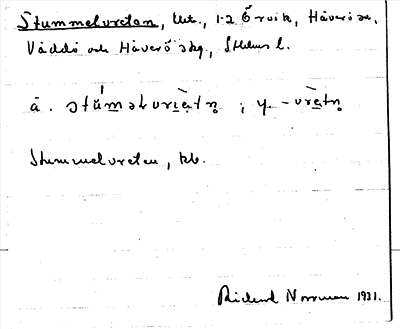 Stummelvreten, lht., 1-2 Örvik, Häverö sn,
Väddö och Häverö skg, Sthlms l.
ä. stùməlvrìe̯tn̥ ; y. -vrè̯tn̥
Stummelvreten, kb.
Rickard Norrman 1931.